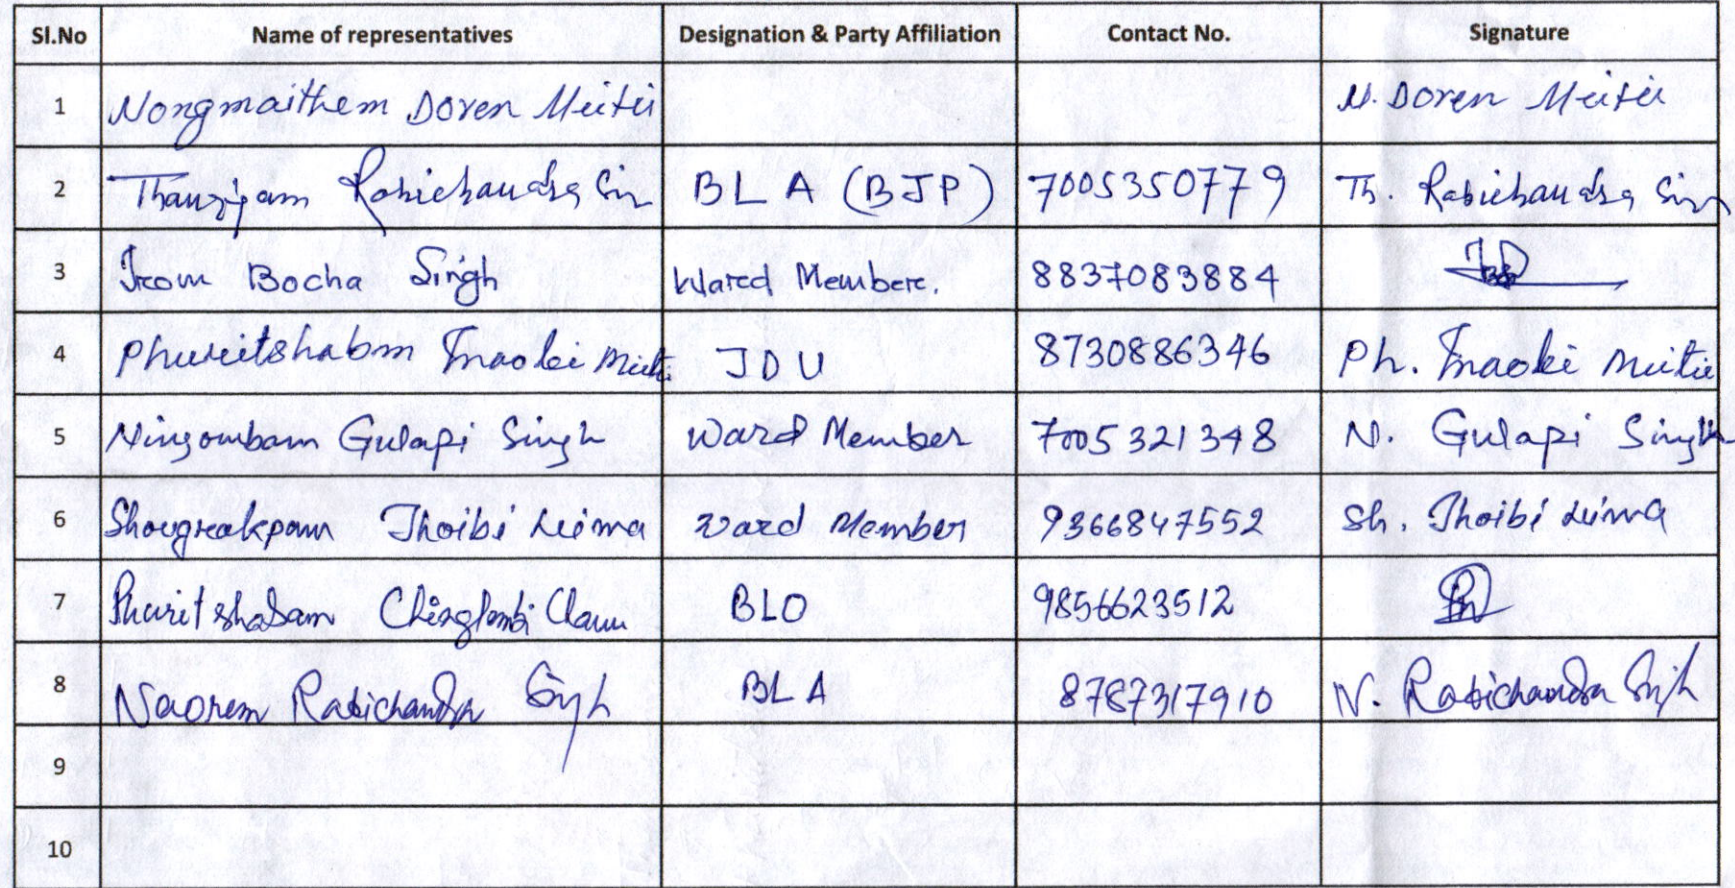 Sl.No Name of representatives Designation & Party Affiliation Contact No. Signature
1 Nongmaithem Doren Meitei N. Doren Meitei
2 Thangjam Rabichandra Sin BLA (BJP) 7005350779 Th. Rabichandra Sin
3 Irom Bocha Singh Ward Member. 8837083884
4 Phuritshabam Inaobi Meitei JDU 8730886346 Ph. Inaobi Meitei
5 Ningombam Gulapi Singh Ward Member 7005321348 N. Gulapi Singh
6 Shougrakpam Thoibi Leima Ward Member 9366847552 Sh. Thoibi Leima
7 Phuritshabam Chinglembi Chanu BLO 9856623512
8 Naorem Rabichandra Singh BLA 8787317910 N. Rabichandra Singh
9
10